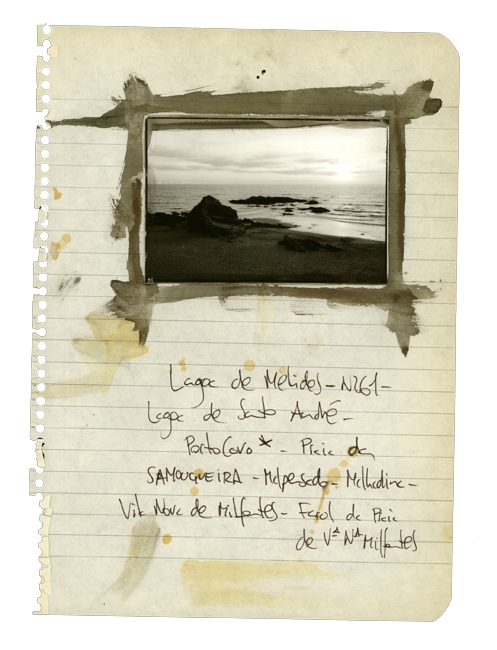 Lagoa de Melides - N261 -
Lagoa de Santo André -
Porto Covo * - Praia da
SAMOUQUEIRA - Malpensado - Malhadinha -
Vila Nova de Milfontes - Farol da Praia
de Vª Nª Milfontes